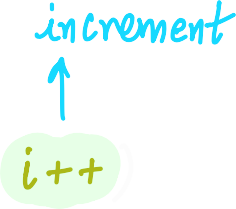 increment
i++